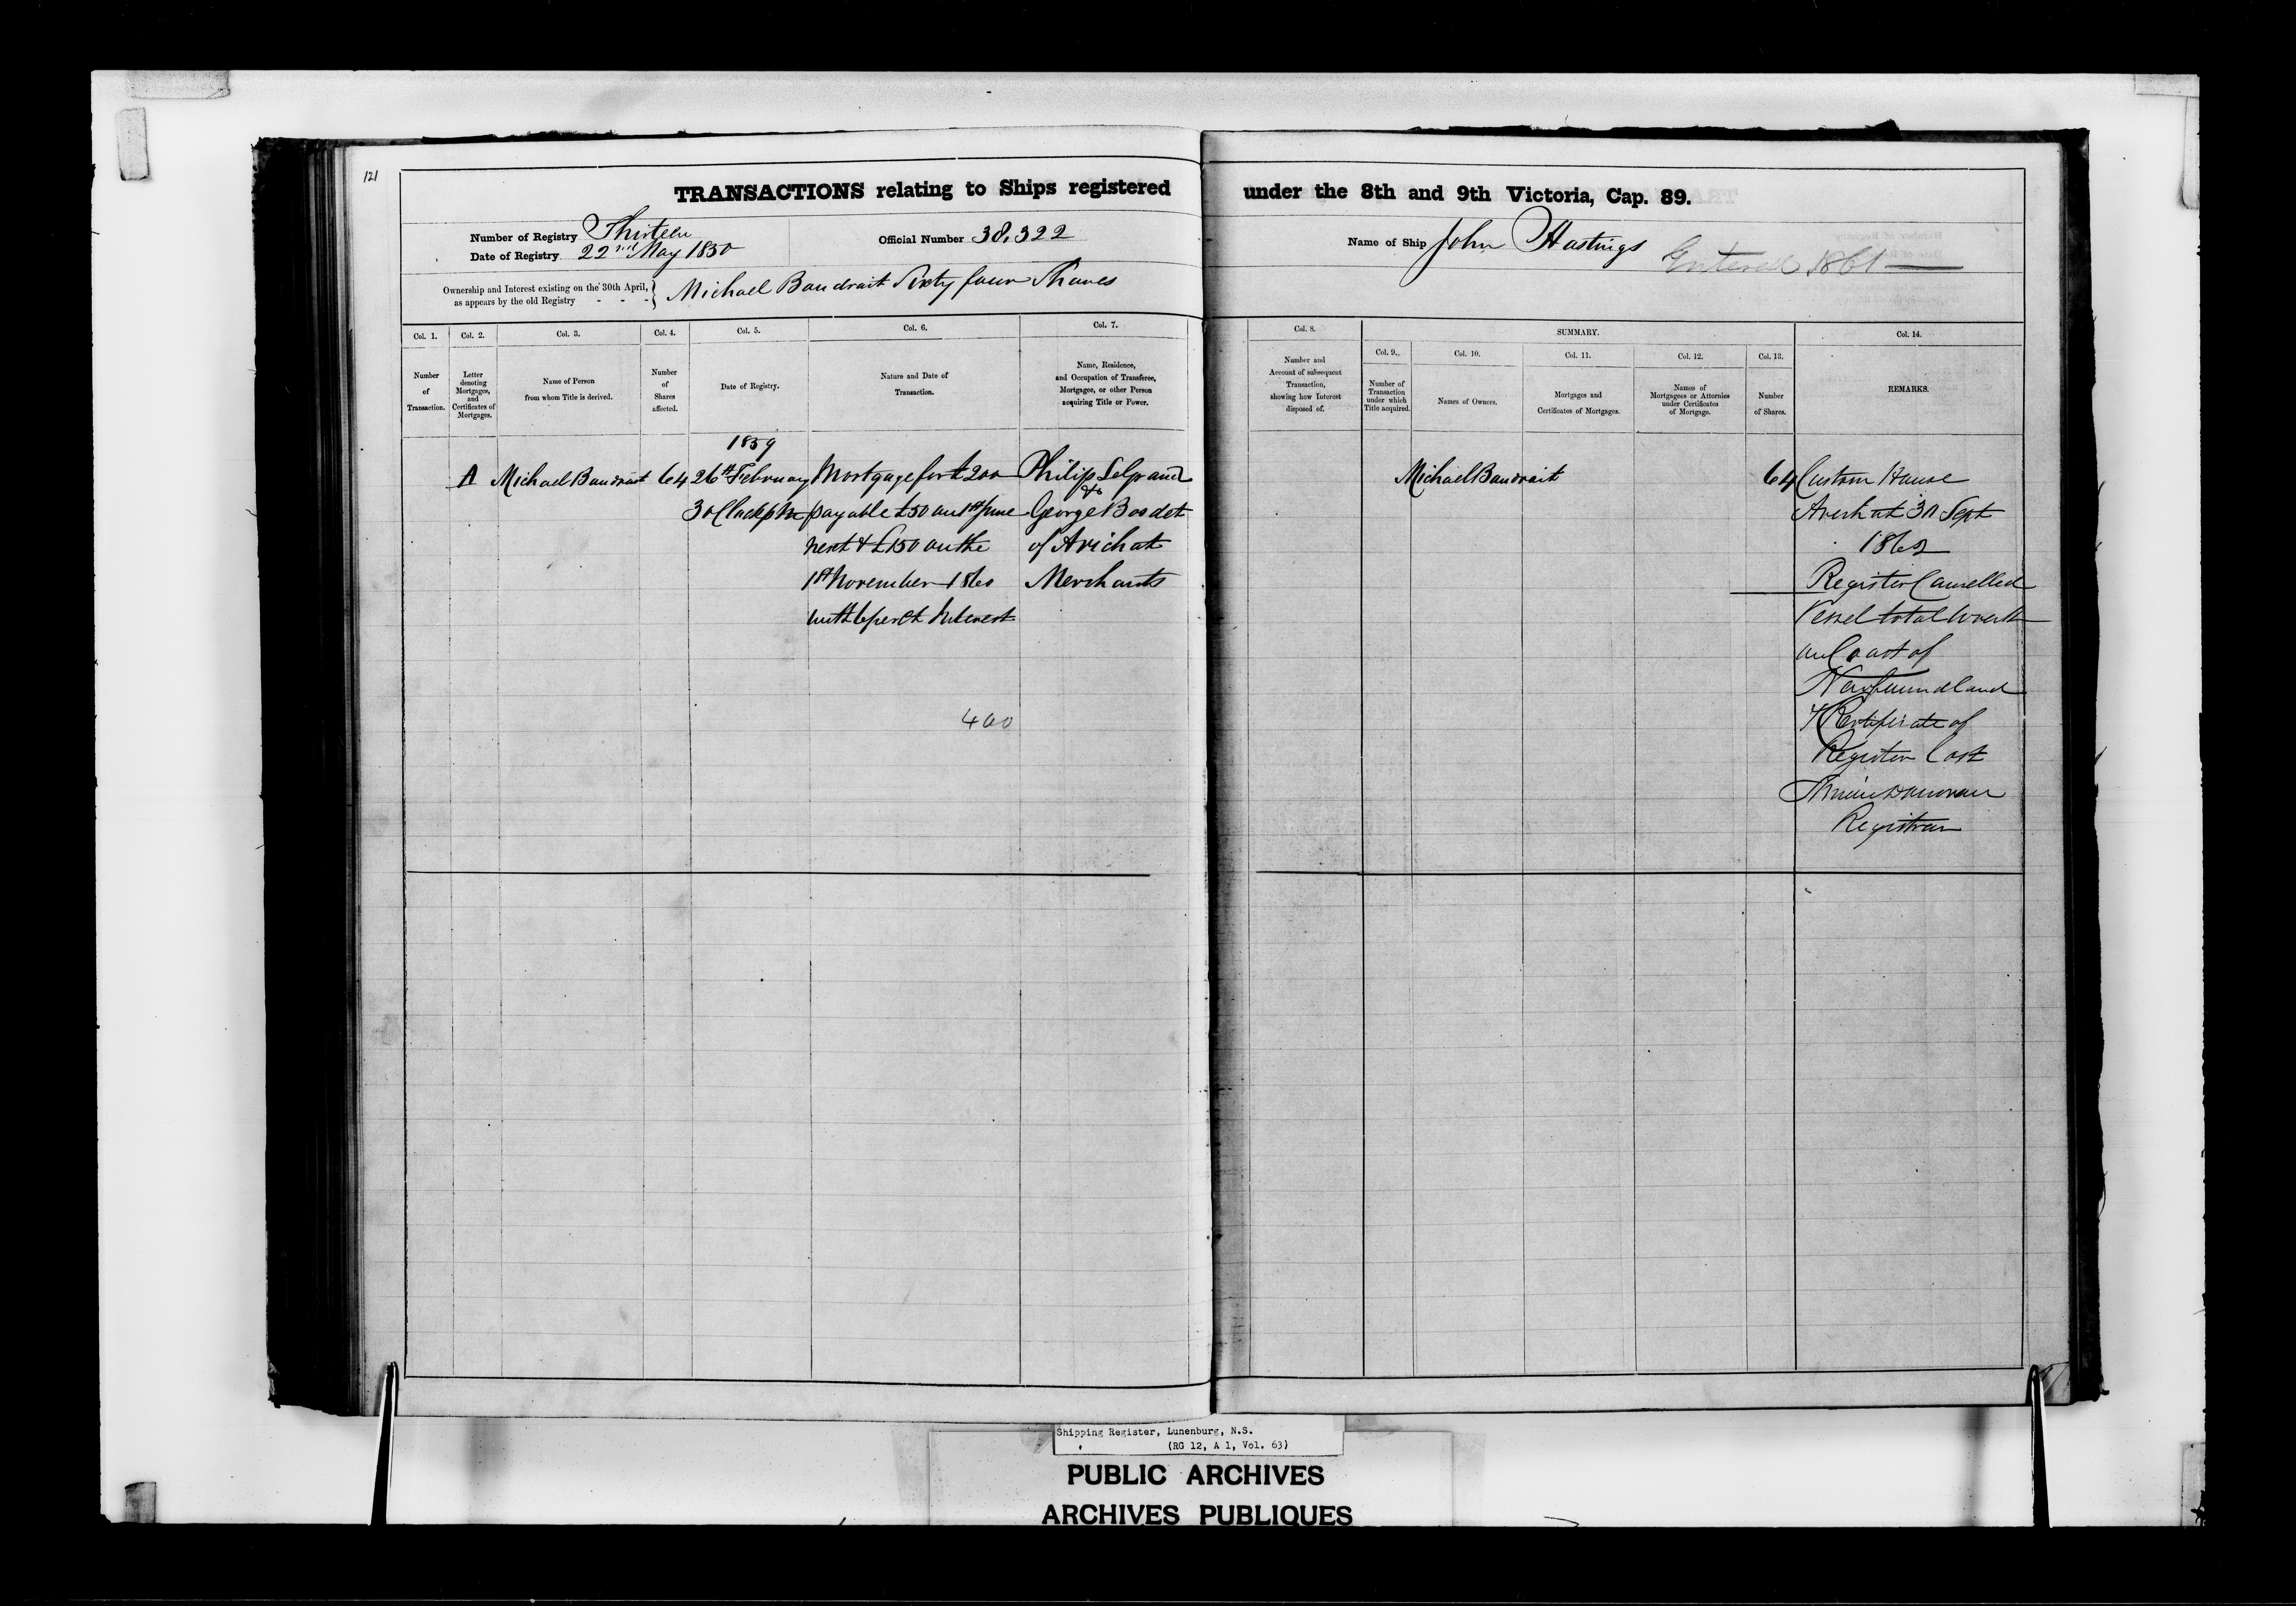 121
TRANSACTIONS relating to Ships registered under the 8th and 9th Victoria, Cap. 89.
Number of Registry Thirteen
Date of Registry 22nd May 1850
Official Number 38.322
Name of Ship John Hastings Entered 1861
Ownership and Interest existing on the 30th April,
as appears by the old Registry - - - } Michael Baudrait Sixty four Shares
Col. 1.
Number
of
Transaction.
Col. 2.
Letter
denoting
Mortgages,
and
Certificates of
Mortgages.
Col. 3.
Name of Person
from whom Title is derived.
Col. 4.
Number
of
Shares
affected.
Col. 5.
Date of Registry.
Col. 6.
Nature and Date of
Transaction.
Col. 7.
Name, Residence,
and Occupation of Transferee,
Mortgagee, or other Person
acquiring Title or Power.
Col. 8.
Number and
Account of subsequent
Transaction,
showing how Interest
disposed of.
SUMMARY.
Col. 9.
Number of
Transaction
under which
Title acquired.
Col. 10.
Names of Owners.
Col. 11.
Mortgages and
Certificates of Mortgages.
Col. 12.
Names of
Mortgagees or Attornies
under Certificates
of Mortgage.
Col. 13.
Number
of Shares.
Col. 14.
REMARKS.
A
Michael Baudrait
64
1859
26th February
3 oClock pm
Mortgage for £200
payable £50 on 1st June
next & £150 on the
1st November 1860
with 6 per ct Interest
400
Philip
&
George Bosdet
of Arichat
Merchants
Michael Baudrait
64
Custom House
Arichat 30 Sept
1862
Register Cancelled
Vessel total wreck
on Coast of
Newfoundland
& Certificate of
Register Lost
Registrar
Shipping Register, Lunenburg, N.S.
(RG 12, A 1, Vol. 63)
PUBLIC ARCHIVES
ARCHIVES PUBLIQUES